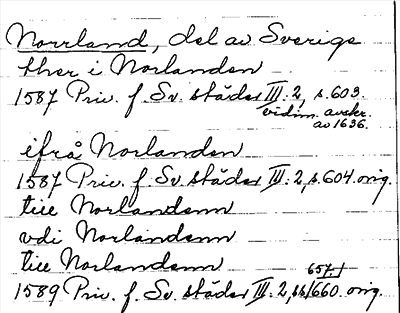 Norrland, del av Sverige
ther i Norlanden
1587 Priv. f. Sv. städer III. 2, s. 603.
vidim. avskr.
av 1636.
ifrå Norlanden
1587 Priv. f. Sv. städer III. 2, s. 604. orig.
till Norlandenn
vdi Norlandenn
till Norlandenn
1589 Priv. f. Sv. städer III. 2, 660. orig.